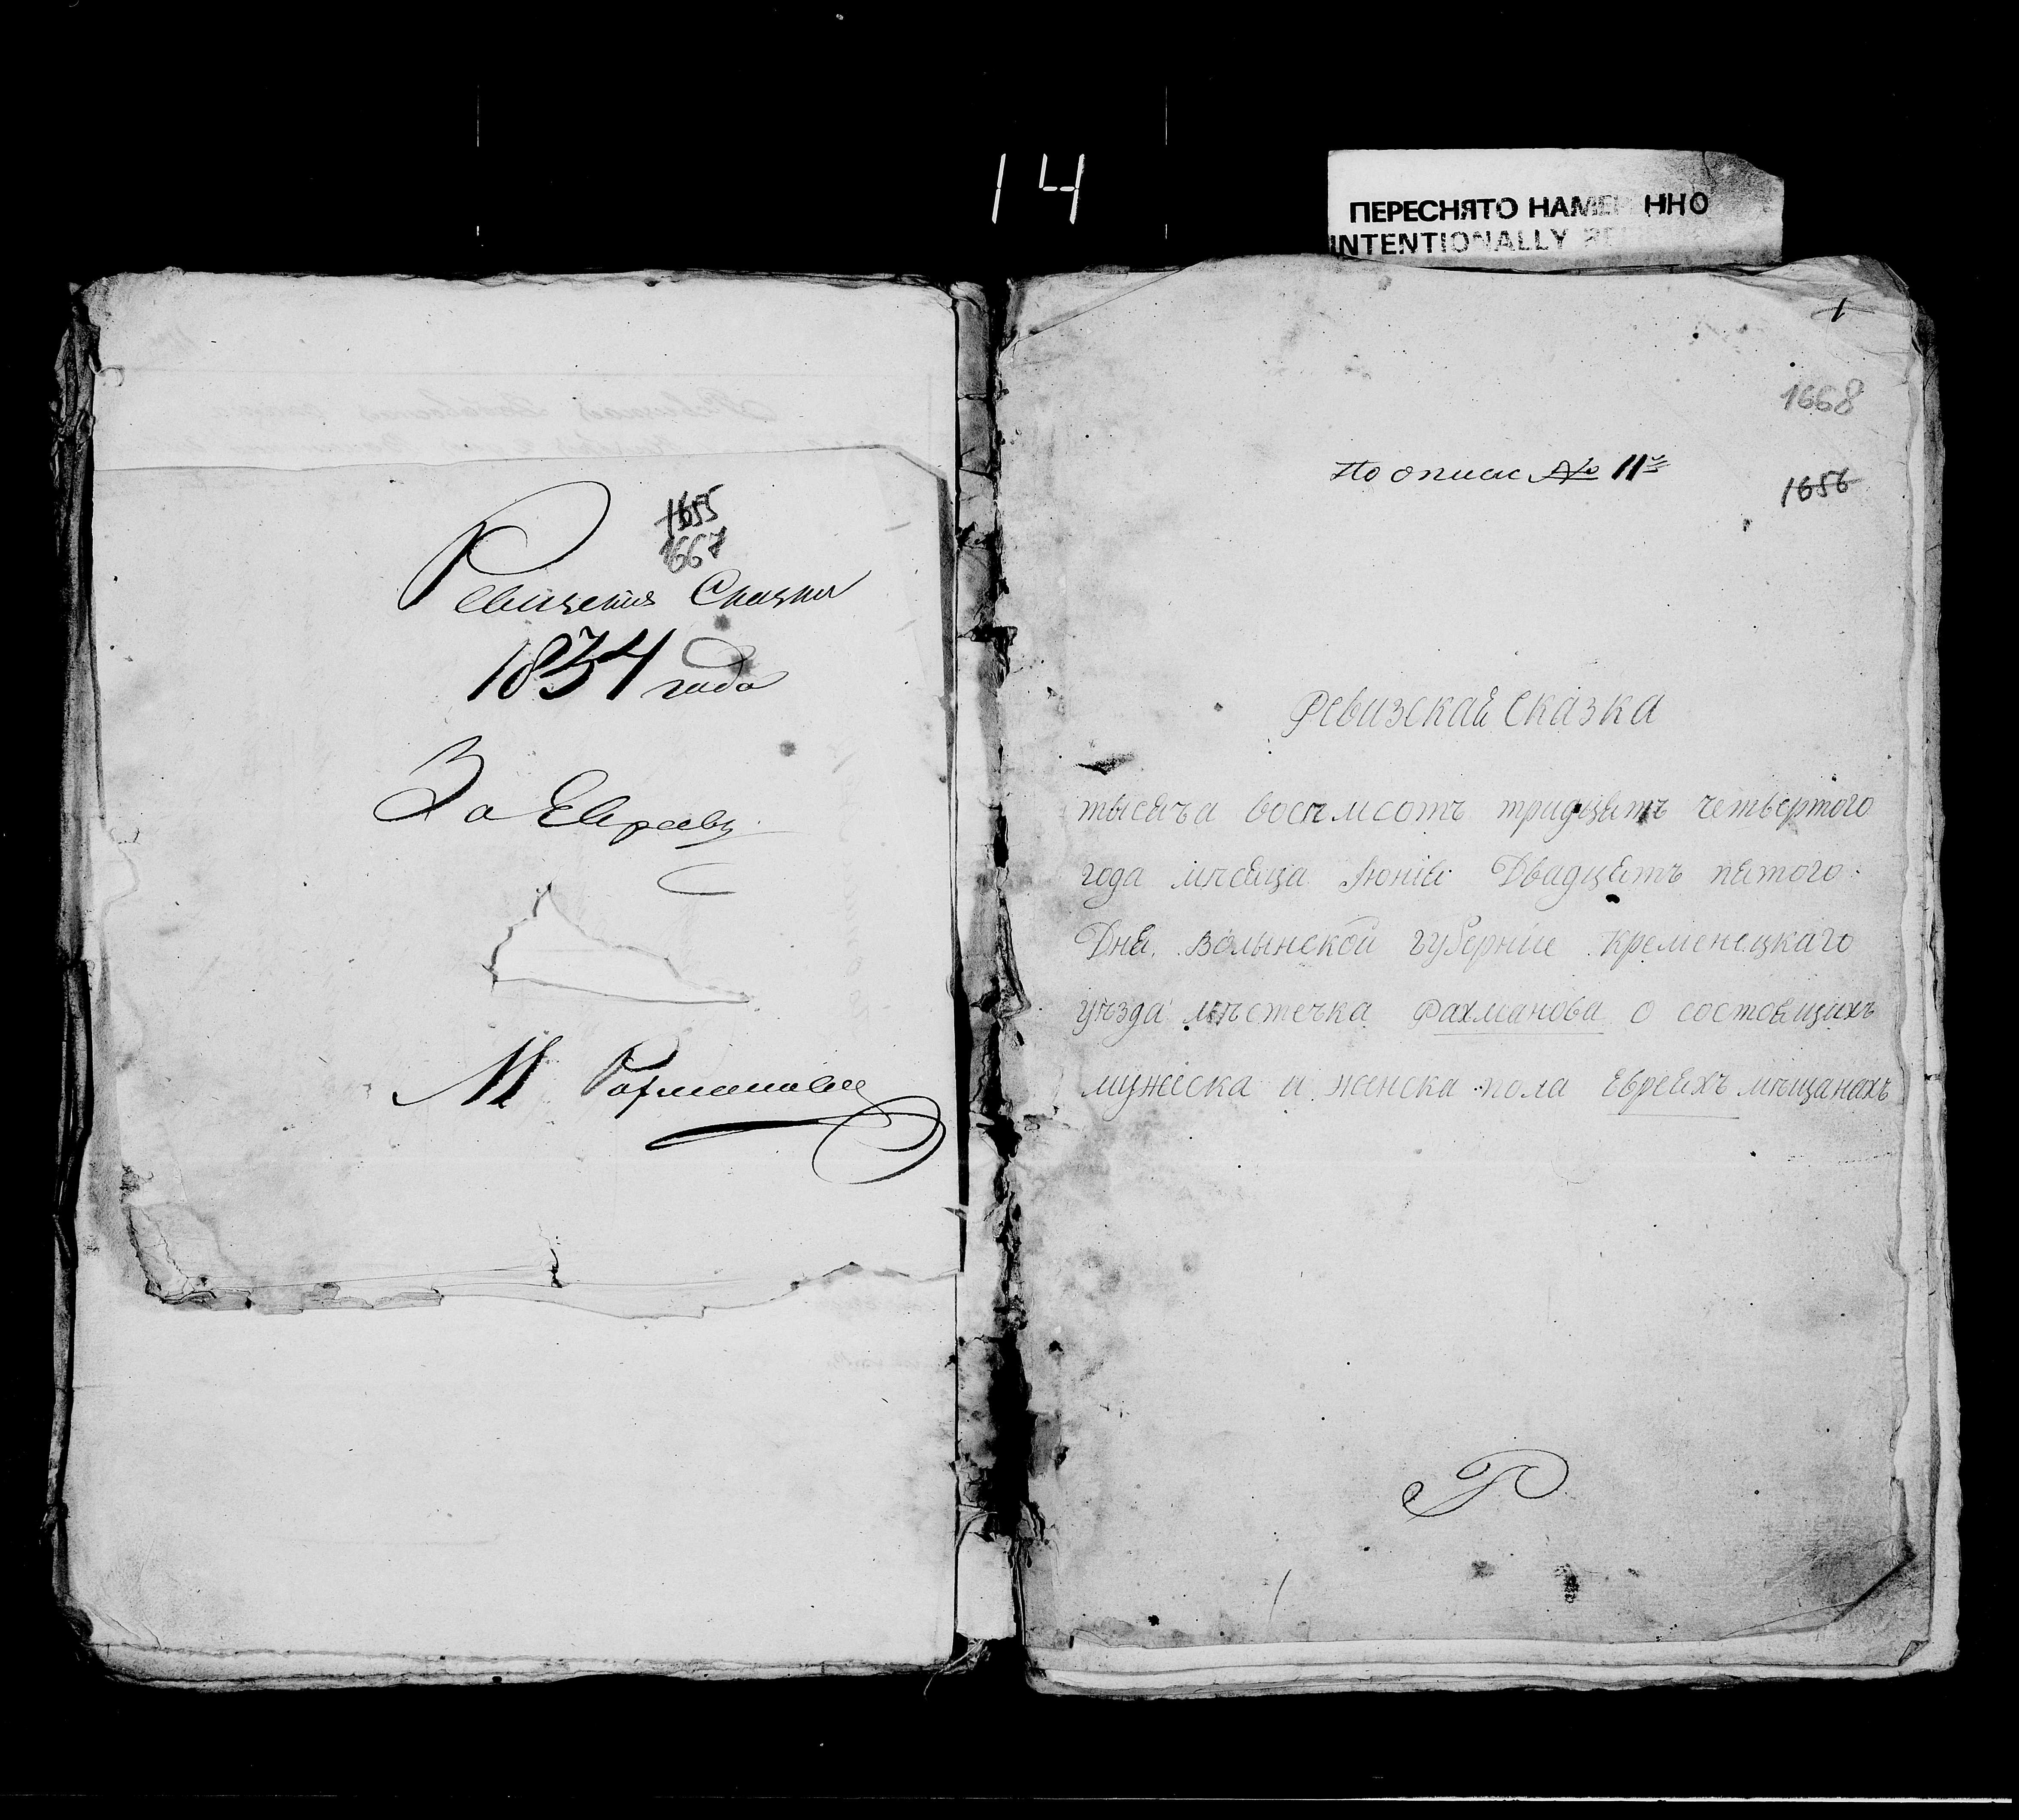 14
ПЕРЕСНЯТО НАМЕ ННО
INTENTIONALLY
1655
1667
Ревизския Сказки
1834 года
За Евреевъ
М Рахманова
1
1668
По описи № 11й
1656
Ревизская Сказка
тысяча восѣмсотъ тридцять четвертого
года мѣсяца Июнія Двадцять пятого
Дня. Волынской губерніи Кременецкаго
уѣзда мѣстечка Рахманова о состоящихъ
мужеска и женска пола Евреяхъ мѣщанахъ